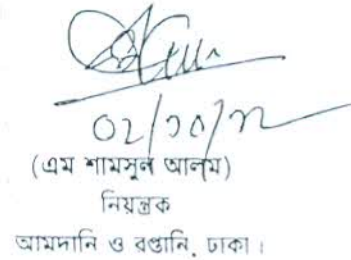 ০২/১০/১২
(এম শামসুল আলম)
নিয়ন্ত্রক
আমদানি ও রপ্তানি, ঢাকা।